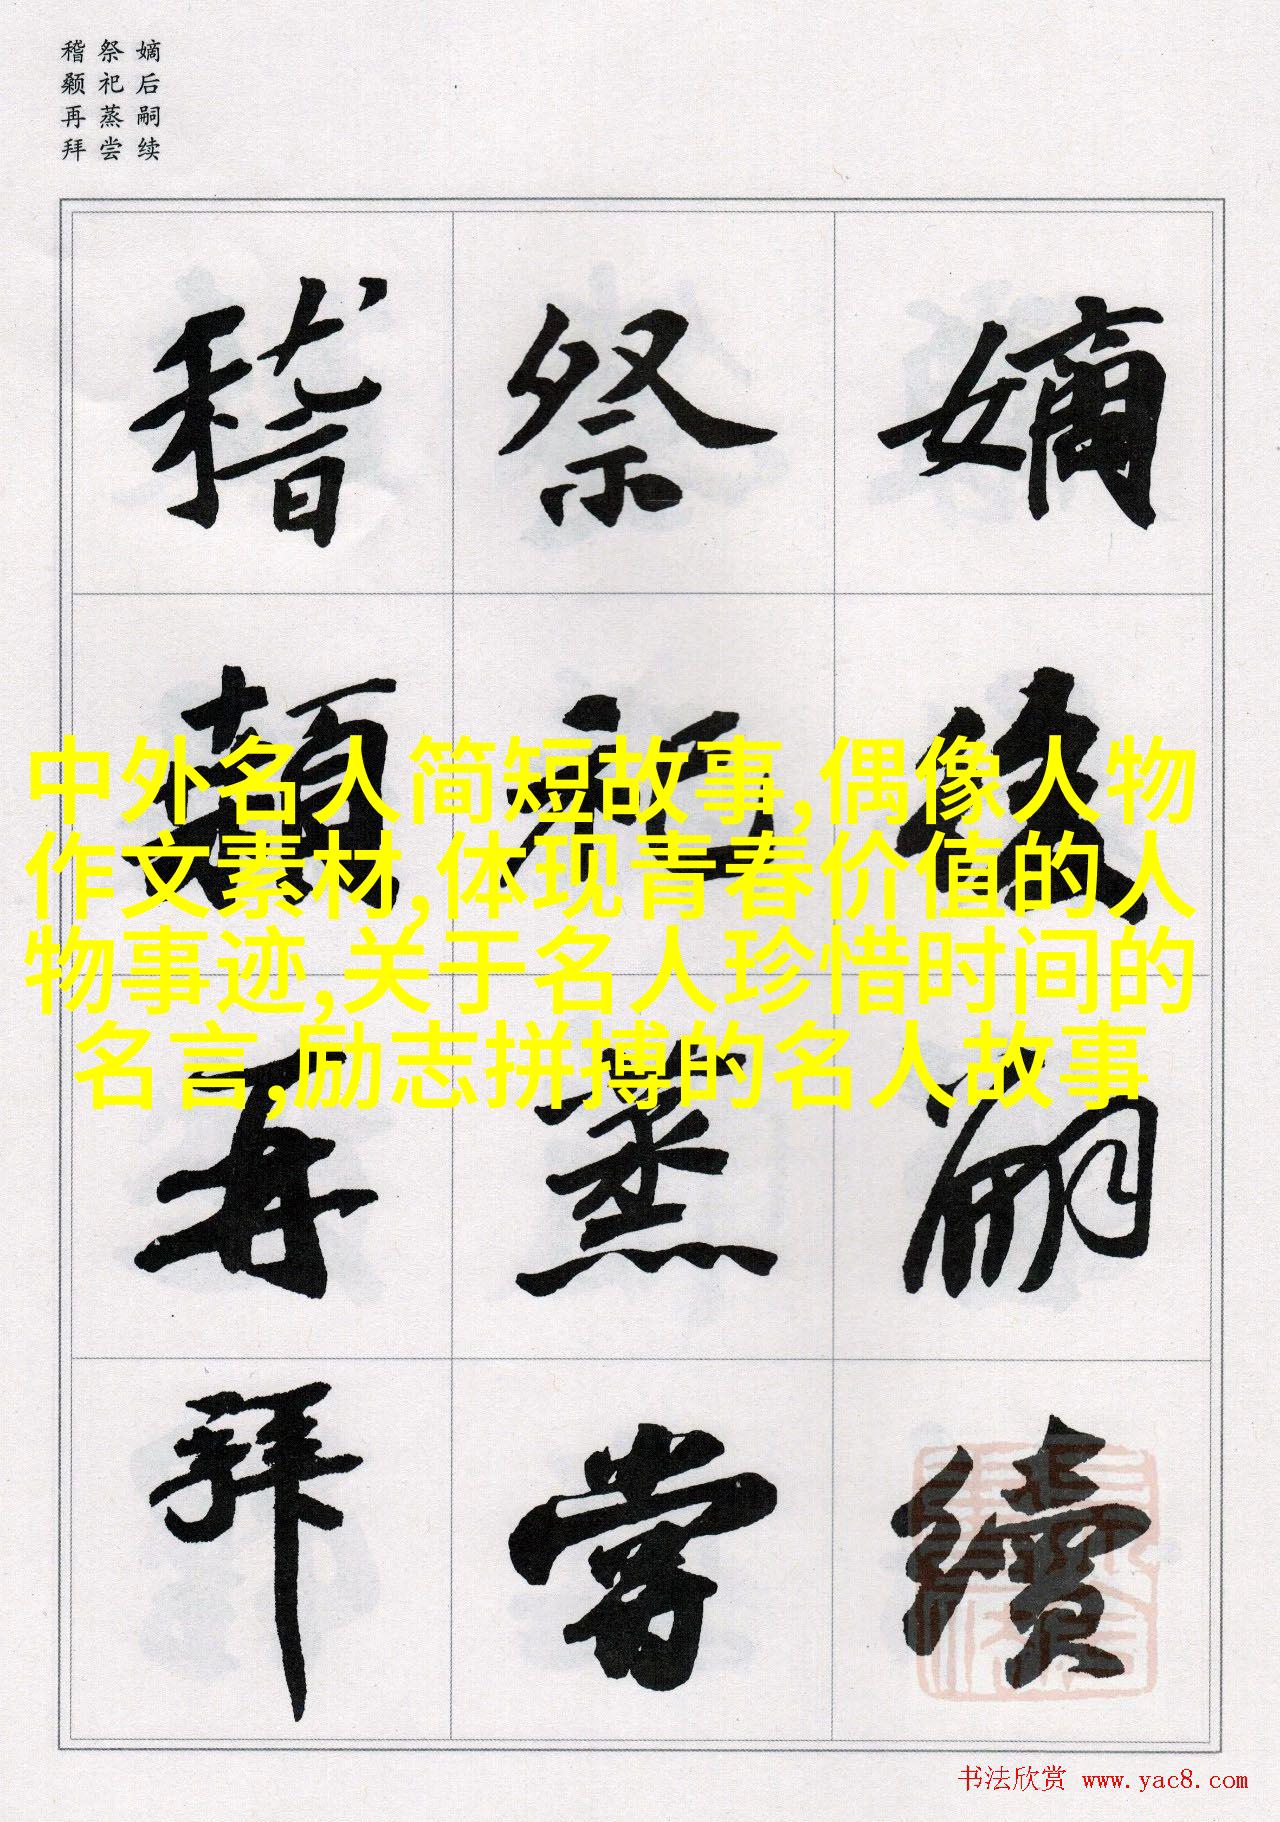 嫡后嗣续
祭祀蒸尝
稽颡再拜
嫡後嗣續
祭祀蒸嘗
稽顙再拜
中外名人简短故事,偶像人物
作文素材,体现青春价值的人
物事迹,关于名人珍惜时间的
名言,励志拼搏的名人故事
书法欣赏 www.yac8.com